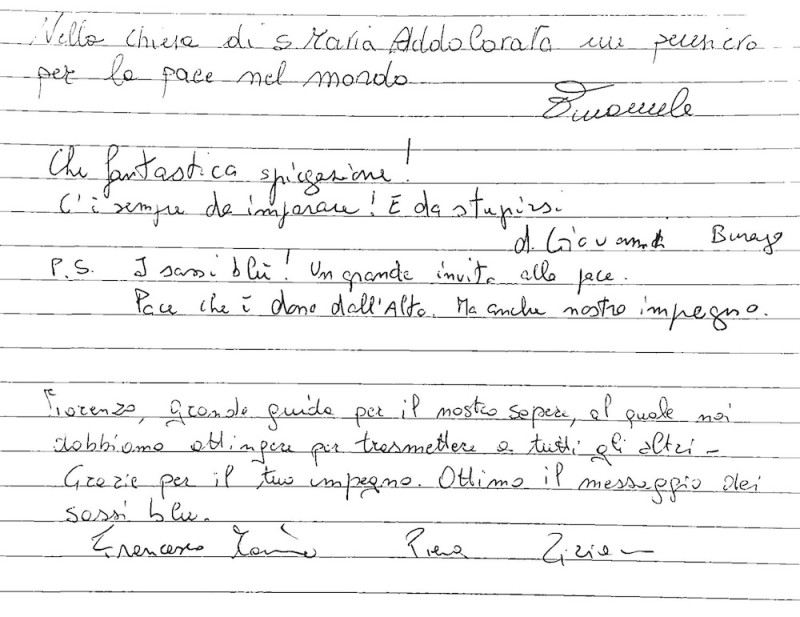 Nella chiesa di S Maria Addolorata un pensiero
per la pace nel mondo
Emanuele
Che fantastica spiegazione!
C'è sempre da imparare! E da stupirsi.
d. Giovanni
P.S. I sassi blù! Un grande invito alla pace.
Pace che è dono dall'Alto. Ma anche nostro impegno.
Fiorenzo, grande guida per il nostro sapere, al quale noi
dobbiamo attingere per trasmettere a tutti gli altri -
Grazie per il tuo impegno. Ottimo il messaggio dei
sassi blu.
Francesco Piera